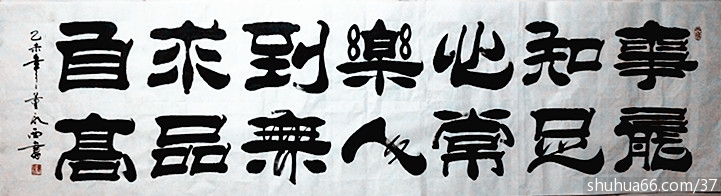 事能
知足
心常
樂人
到無
求品
自高
乙未年董永西書
shuhua66.com/37